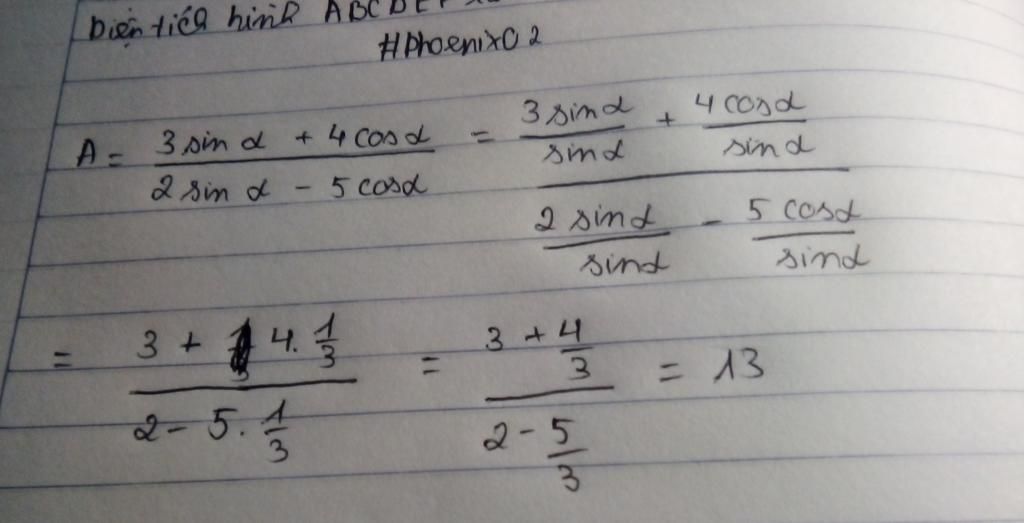 Diện tích hình ABCDEF
#Phoenix02
A = \frac{3 sin α + 4 cosα}{2 sin α - 5 cosα} = \frac{\frac{3 sinα}{sinα} + \frac{4 cosα}{sinα}}{\frac{2 sinα}{sinα} - \frac{5 cosα}{sinα}}
= \frac{3 + 4. \frac{1}{3}}{2 - 5. \frac{1}{3}} = \frac{3 + \frac{4}{3}}{2 - \frac{5}{3}} = 13